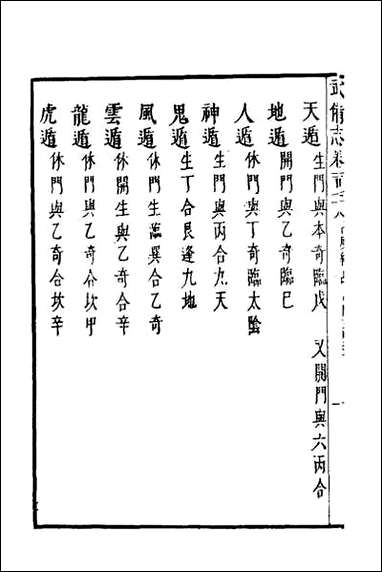 武備志卷
天遁 生門與本奇臨戊 又開門與六丙合
地遁 開門與乙奇臨己
人遁 休門與丁奇臨太陰
神遁 生門與丙合九天
鬼遁 生丁合艮逢九地
風遁 休門生臨巽合乙奇
雲遁 休開生與乙奇合辛
龍遁 休門與乙奇合坎甲
虎遁 休門與乙奇合坎辛